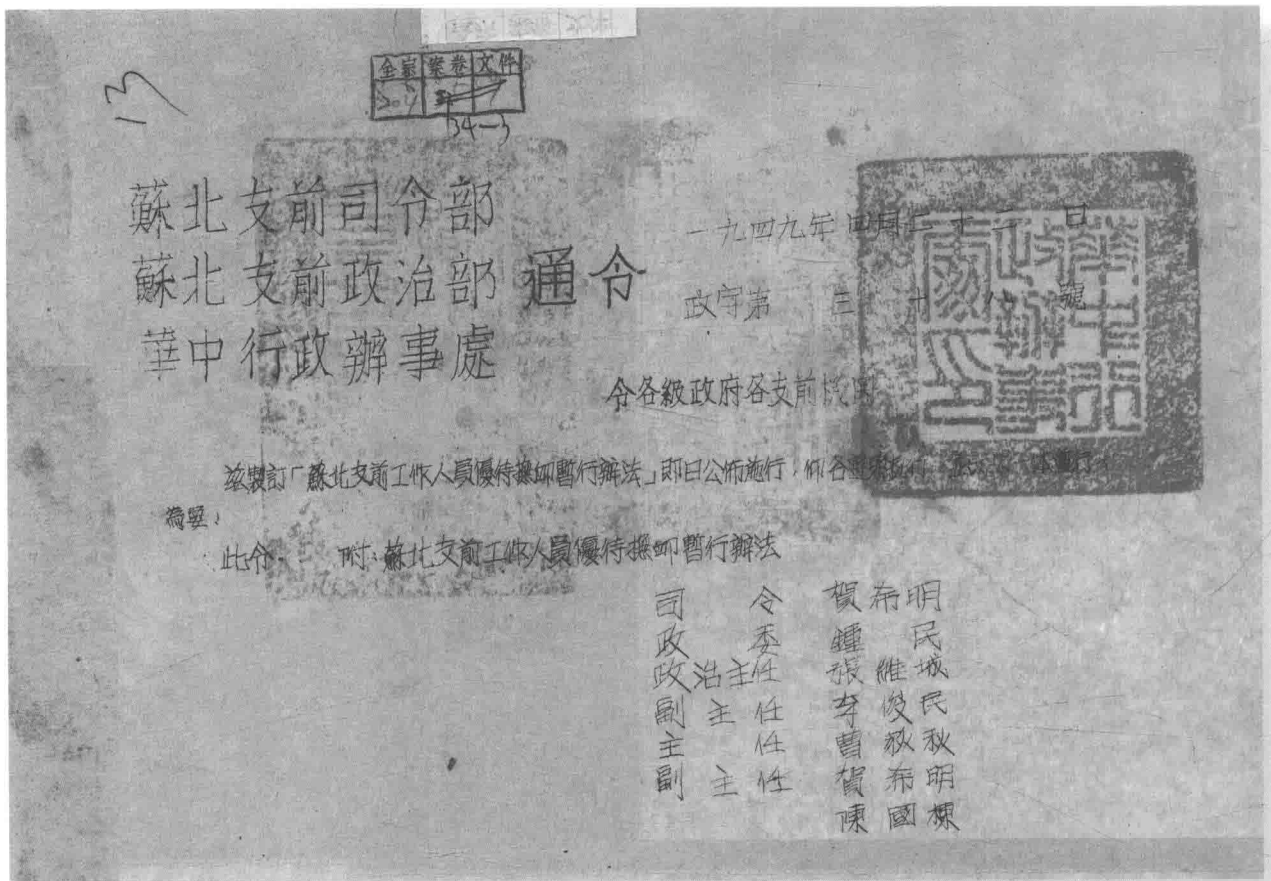 13
全宗 案卷 文件
34-3
蘇北支前司令部
蘇北支前政治部 通令
華中行政辦事處
一九四九年四月二十二日
政字第三十八號
令各級政府各支前機関
茲製訂「蘇北支前工作人員優待撫卹暫行辦法」即日公佈施行,仰各
為要,
此令. 附:蘇北支前工作人員優待撫卹暫行辦法
司令 賀希明
政委 鍾民
政治主任 張維城
副主任 李俊民
主任 曹荻秋
副主任 賀希明
陳國棟
華中行政辦事處印